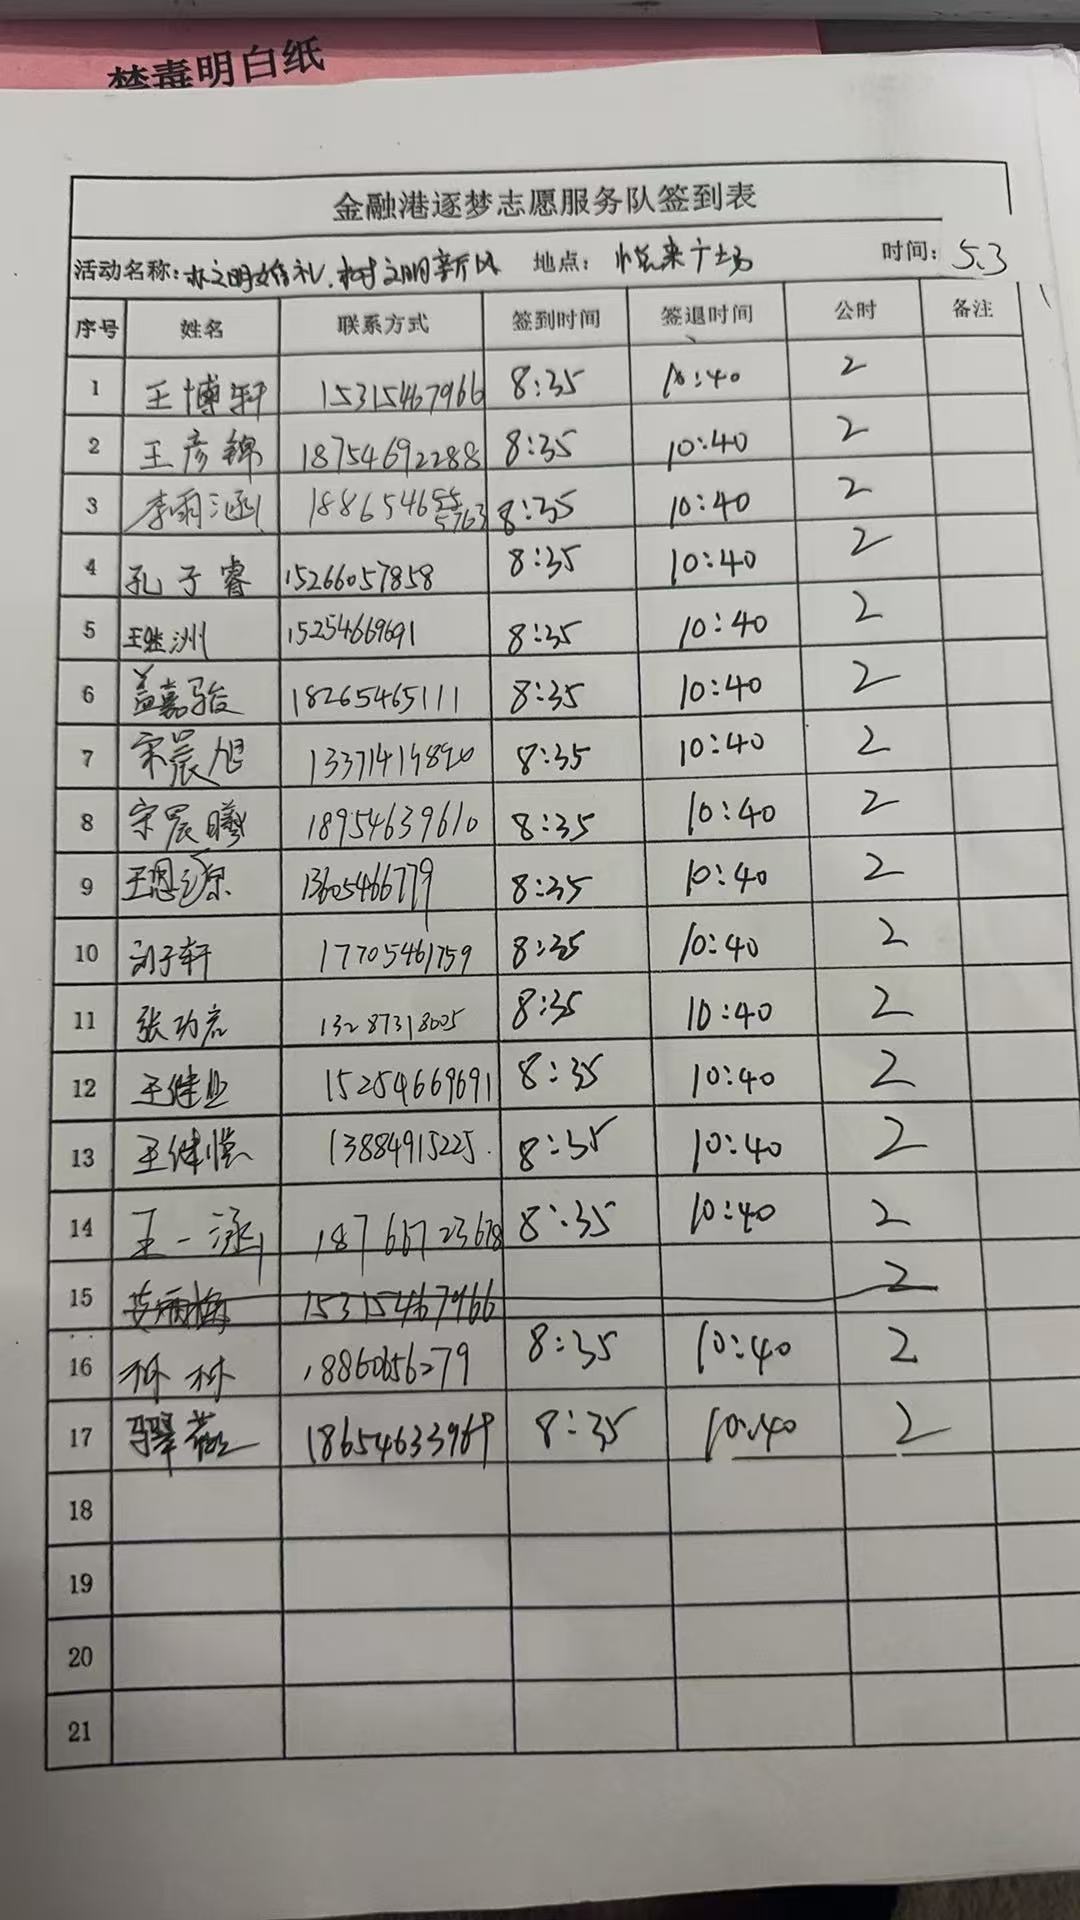 禁毒明白纸
金融港逐梦志愿服务队签到表
活动名称: 办文明婚礼、树文明新风 地点: 悦来广场 时间: 5.3
序号 姓名 联系方式 签到时间 签退时间 公时 备注
1 王博轩 15315467966 8:35 10:40 2
2 王彦锦 18754692288 8:35 10:40 2
3 李雨涵 8:35 10:40 2
4 孔子睿 15266057858 8:35 10:40 2
5 王继洲 15254669691 8:35 10:40 2
6 盖嘉骏 18265465111 8:35 10:40 2
7 宋晨旭 8:35 10:40 2
8 宋晨曦 18954639610 8:35 10:40 2
9 王 13605466779 8:35 10:40 2
10 刘子轩 17705461759 8:35 10:40 2
11 张功 8:35 10:40 2
12 王健业 15254669691 8:35 10:40 2
13 王健 13884915225 8:35 10:40 2
14 王一涵 8:35 10:40 2
15 15315467966 2
16 8:35 10:40 2
17 8:35 10:40 2
18
19
20
21